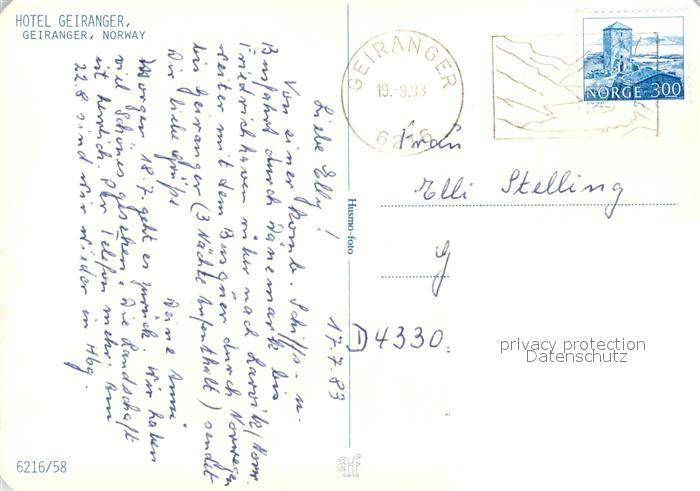 HOTEL GEIRANGER,
GEIRANGER, NORWAY
17.7.83
Liebe Elly!
Von einer komb. Schiffs- u.
Busfahrt durch Dänemark bis
Fredrikhaven rüber nach Larvik/Norw.
weiter mit dem Bus quer durch Norwegen
bis Geiranger (3 Nächte Aufenthalt) sendet
Dir liebe Grüße
Deine Anni.
Morgen 18.7. geht es zurück. Wir haben
viel Schönes gesehen. Die Landschaft
ist herrlich. Per Telefon mehr. Am
22.8 sind wir wieder in Hbg.
6216/58
Husmo-foto
GEIRANGER
19.-8.83
6216
NORGE 300
Frau
Elli Stelling
D 4330
privacy protection
Datenschutz